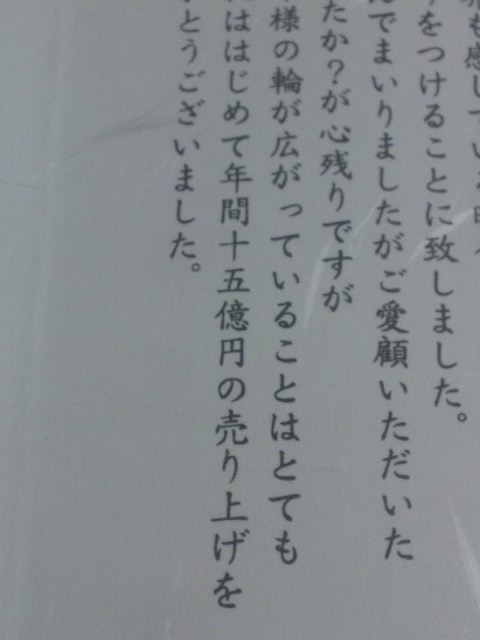 も感している
をつけることに致しました。
でまいりましたがご愛顧いただいた
たか？が心残りですが
様の輪が広がっていることはとても
はじめて年間十五億円の売り上げを
とうございました。